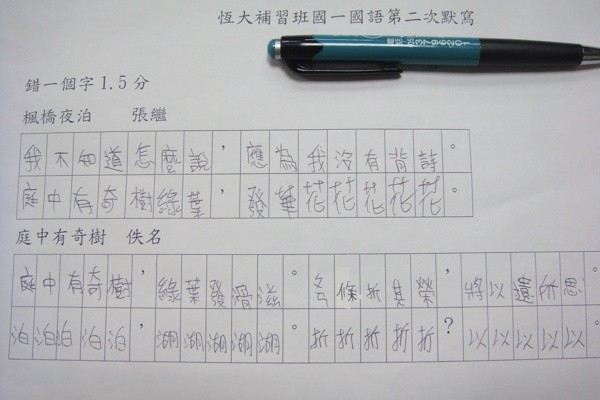 恆大補習班國一國語第二次默寫
錯一個字1.5分
楓橋夜泊 張繼
我不知道怎麼說，應為我沒有背詩。
庭中有奇樹綠葉 發華花花花花花
庭中有奇樹 佚名
庭中有奇樹，綠葉發滑滋。 條折其榮，將以遺所思。
泊泊泊泊泊，湖湖湖湖湖。折折折折折？以以以以以。